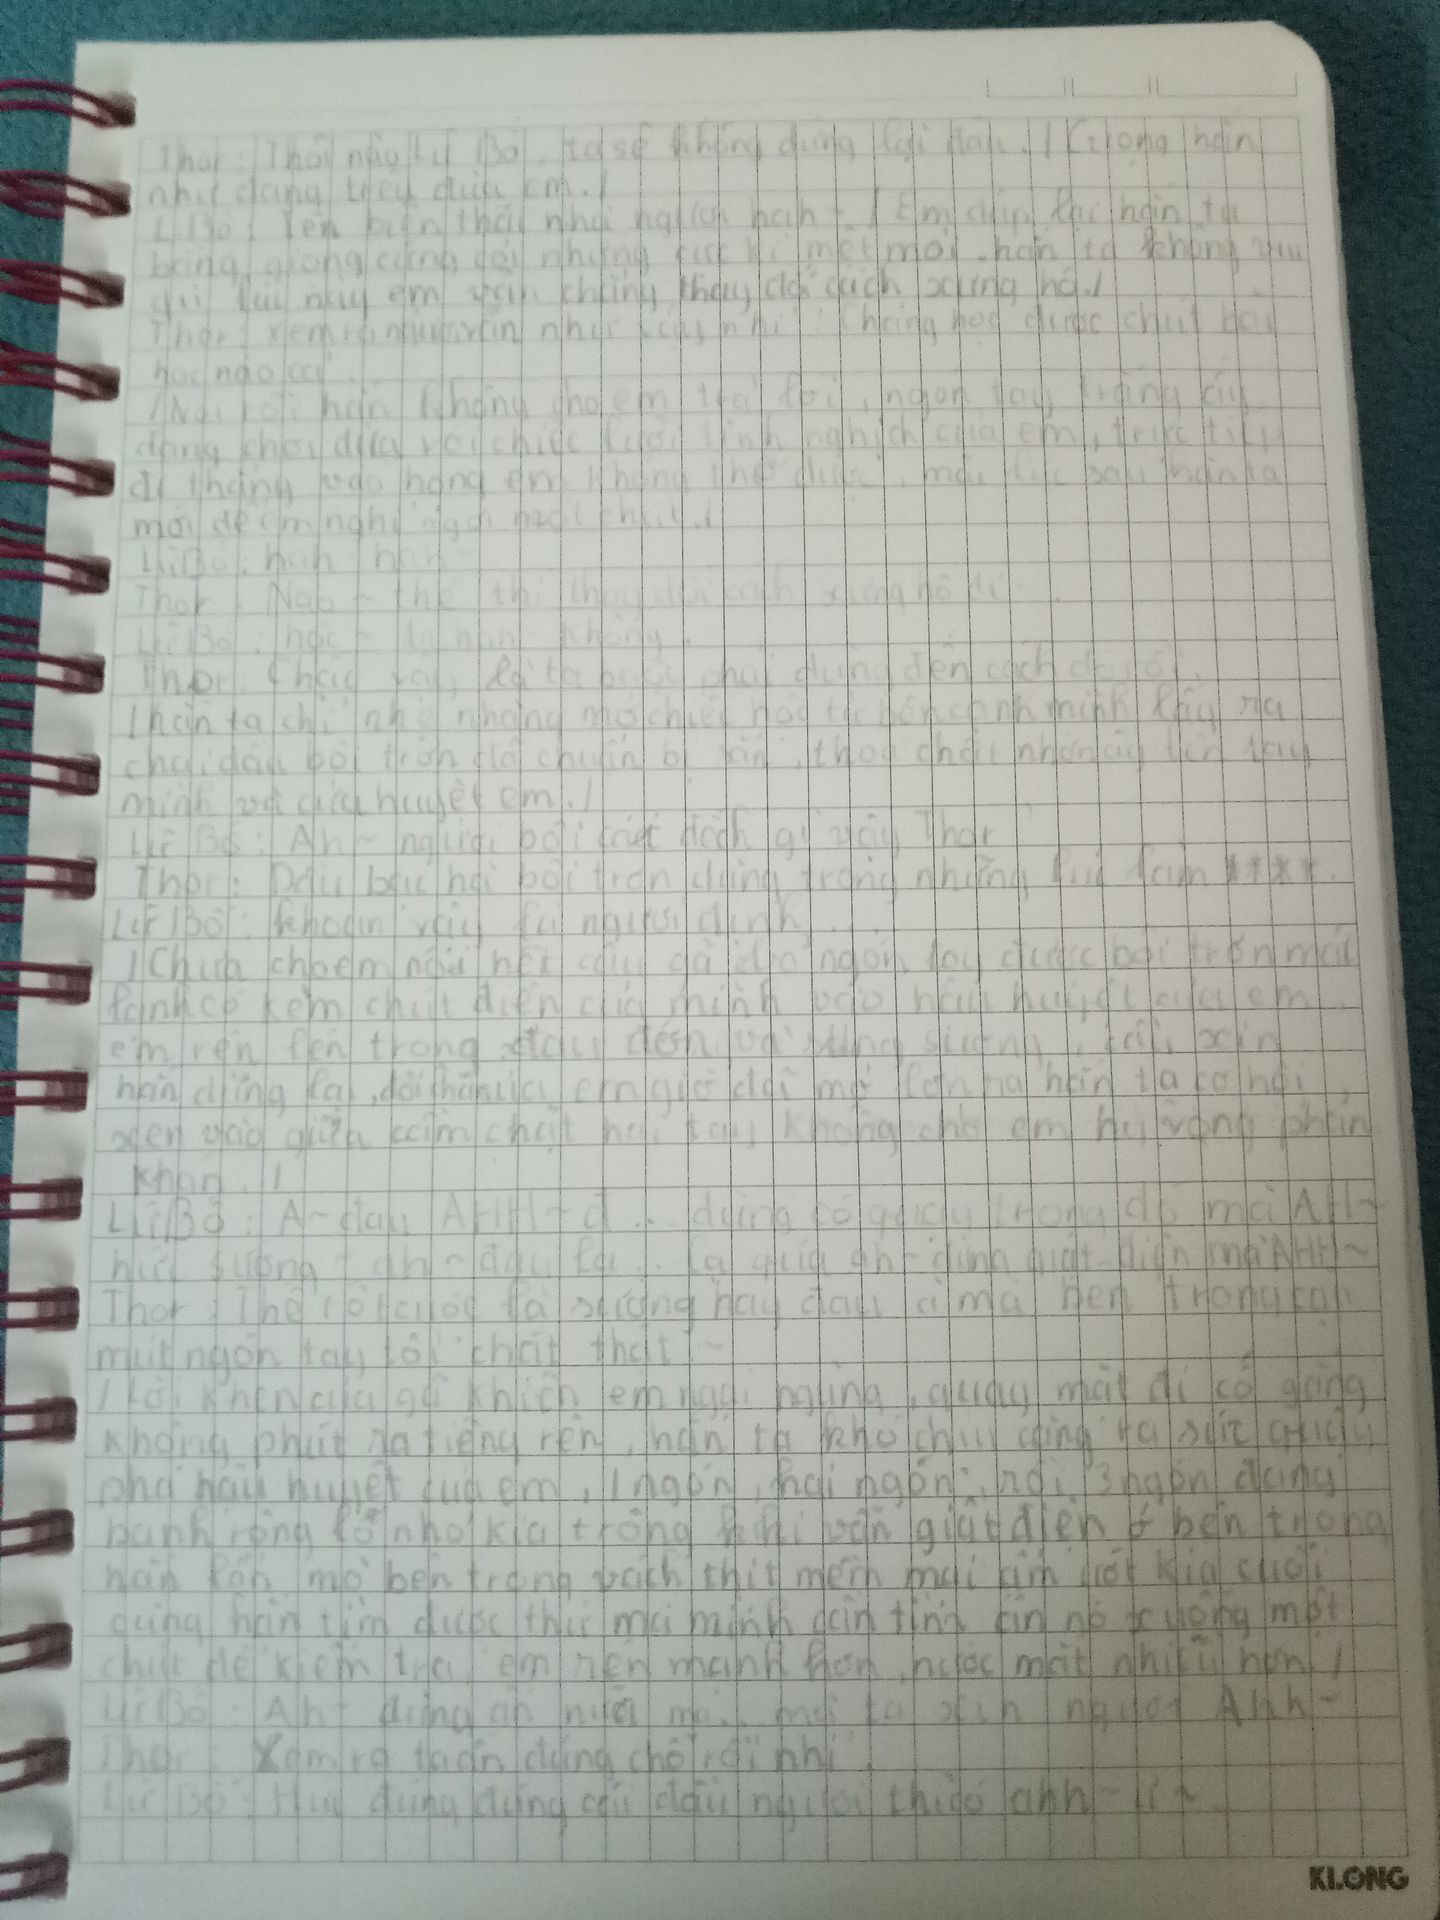 Thor: Thôi nào Lữ Bố, ta sẽ không dừng lại đâu. / Giọng hắn
như đang trêu đùa em. /
Lữ Bố: Tên biến thái nhà ngươi hah ~ / Em đáp lại hắn ta
bằng giọng cứng cỏi nhưng cực kì mệt mỏi, hắn ta không vui
lúc này em vẫn chẳng thay đổi cách xưng hô. /
Thor: Xem ra ngươi vẫn như vậy nhỉ. Chẳng học được chút bài
học nào cả.
/ Nói rồi hắn không cho em trả lời, ngón tay
đang chơi đùa với chiếc lưỡi tinh nghịch của em, trực tiếp
đi thẳng vào họng em không thở được, mãi lúc sau hắn ta
mới để em nghỉ ngơi một chút. /
Lữ Bố: hah hah
Thor: Nào ~ thế thì thay đổi cách xưng hô đi
Lữ Bố: hộc ~ hah không.
Thor: Chắc vậy là ta buộc phải dùng đến cách đó rồi.
/ hắn ta chỉ nhẹ nhàng mở chiếc hộc tủ bên cạnh mình lấy ra
chai dầu bôi trơn đã chuẩn bị sẵn, thoa chất nhờn ấy lên tay
mình và của huyệt em. /
Lữ Bố: Ah ~ ngươi bôi cái đách gì vậy Thor
Thor: Dầu bạc hà bôi trơn dùng trong những lúc làm ****.
Lữ Bố: khoan vậy là ngươi định...
/ Chưa cho em nói hết câu gã đưa ngón tay được bôi trơn mát
lạnh có kèm chút điện của mình vào hậu huyệt của em
em rên lên trong đau đớn và sung sướng, cầu xin
hắn dừng lại, đôi chân của em giờ đã mở lớn ra hắn ta cơ hội
xen vào giữa cầm chặt hai tay không cho em hy vọng phản
kháng. /
Lữ Bố: A ~ đau AHH ~ đ... đừng có quậy trong đó mà AH ~
hức sướng ~ ah ~ đau lạ.. lạ quá ah ~ đừng giật điện mà AHH ~
Thor: Thế rốt cuộc là sướng hay đau ấy mà bên trong
mút ngón tay tôi chặt thật ~
/ lời khen của gã khiến em ngại ngùng, quay mặt đi cố gắng
không phát ra tiếng rên, hắn ta khó chịu càng ra sức quậy
phá hậu huyệt của em, 1 ngón, hai ngón, rồi 3 ngón đang
banh rộng lỗ nhỏ kia trong khi vẫn giật điện ở bên trong
hắn lần mò bên trong vách thịt mềm mại ẩm ướt kia cuối
cùng hắn tìm được thứ mà mình cần tìm ấn nó xuống một
chút để kiểm tra, em rên mạnh hơn nước mắt nhiều hơn /
Lữ Bố: Ah ~ đừng ấn nữa mà.. mà ta xin ngươi Ahh ~
Thor: Xem ra ta ấn đúng chỗ rồi nhỉ.
Lữ Bố: Hức đừng đừng ngươi ahh ~
KLONG